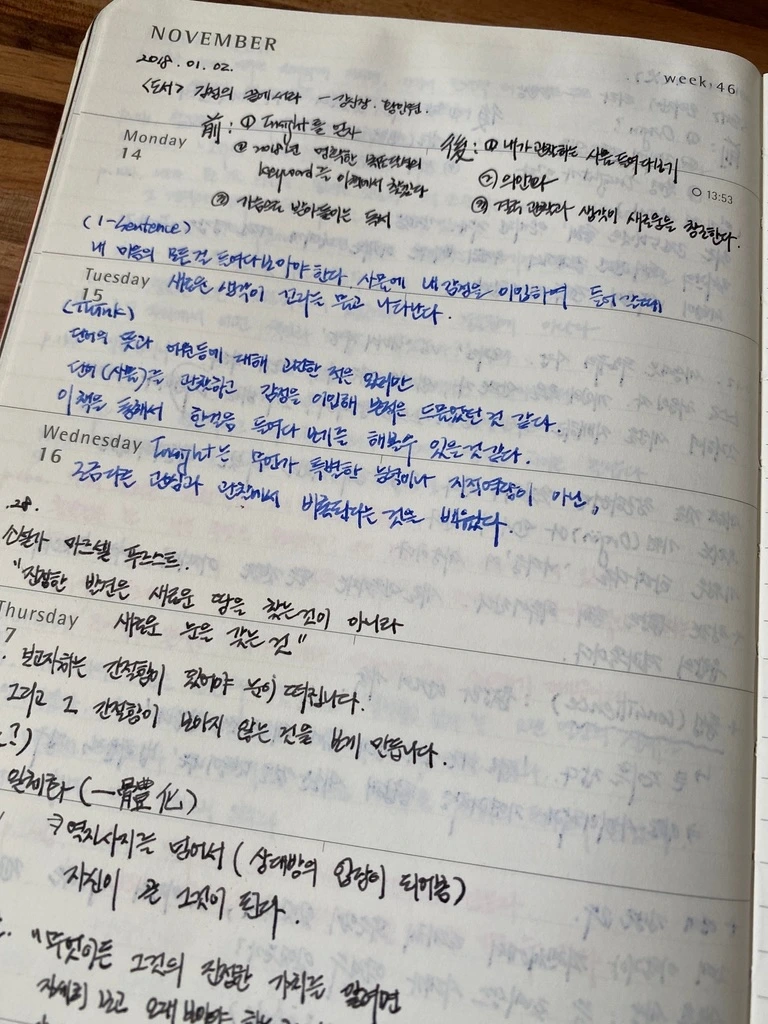 NOVEMBER
week, 46
2018. 01. 02.
<도서> 감정의 끝에 서라 - 강신장. 황인원.
Monday
14
前: ① Insight를 얻자
② 2018년 명확한
keyword를 이 책에서 찾았다
③ 가슴으로 받아들이는 독서
後: ① 내가 관찰하는 사물 들여다보기
② 의인화
③ 결국 관찰과 생각이 새로움을 창조한다.
13:53
(1-Sentence)
내 마음의 모든 걸 들여다 보아야 한다. 사물에 내 감정을 이입하여 들여
Tuesday
15
새로운 생각이 꼬리를 물고 나타난다.
(Think)
단어의 뜻과 어원 등에 대해 고민한 적은 있지만
단어(사물)를 관찰하고 감정을 이입해 본 적은 드물었던 것 같다.
이 책을 통해서 한걸음 들여다 보기를 해볼 수 있을 것 같다.
Wednesday
16
Insight는 무언가 특별한 능력이나 지적 역량이 아닌,
조금 다른 관심과 관찰에서 비롯된다는 것을 배웠다.
.28.
소설가 마르셀 푸르스트..
"진정한 발견은 새로운 땅을 찾는 것이 아니라
새로운 눈을 갖는 것"
Thursday
7
. 보고자 하는 간절함이 있어야 눈이 떠집니다.
그리고 그 간절함이 보이지 않는 것을 보게 만듭니다.
?)
일체화 (一體化)
역지사지를 넘어서 (상대방의 입장이 되어봄)
자신이 곧 그것이 된다.
"무엇이든 그것의 진정한 가치를 알려면
자세히 보고 오래 보아야